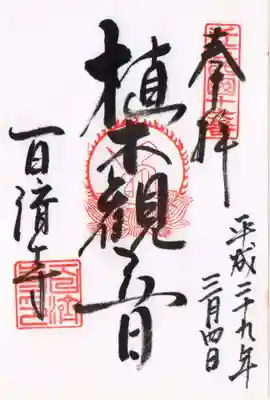 奉拝
平成二十九年
三月四日
植木觀音
百済寺